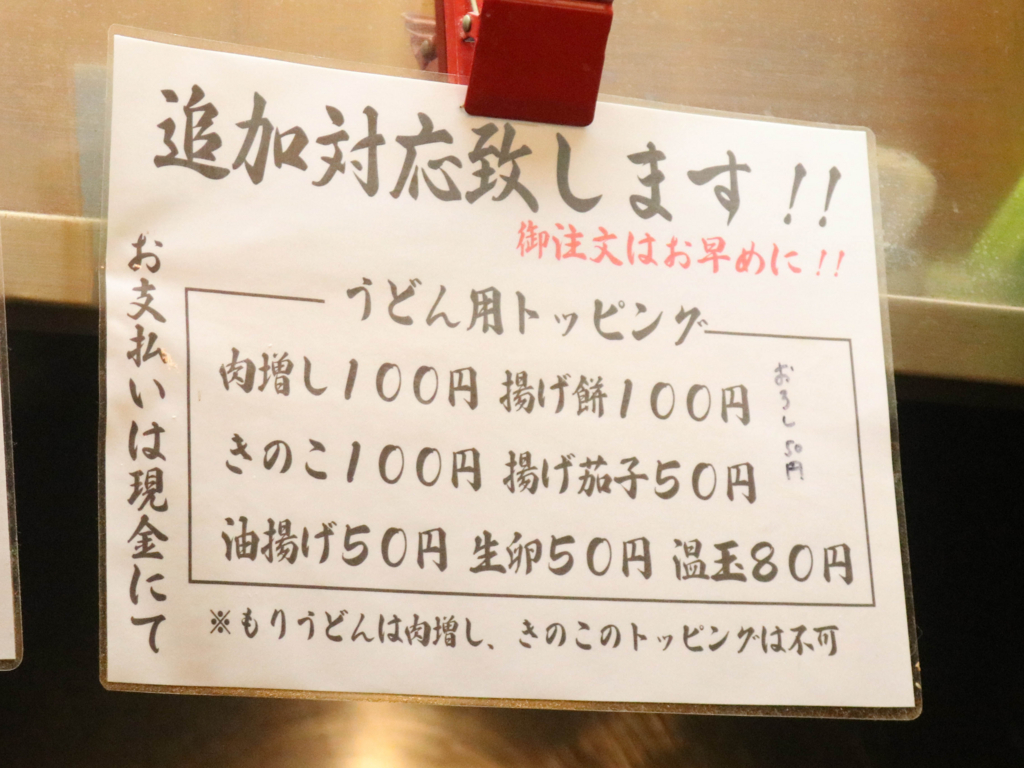 追加対応致します!!
御注文はお早めに!!
お支払いは現金にて
うどん用トッピング
肉増し100円 揚げ餅100円
おろし50円
きのこ100円 揚げ茄子50円
油揚げ50円 生卵50円 温玉80円
※もりうどんは肉増し、きのこのトッピングは不可